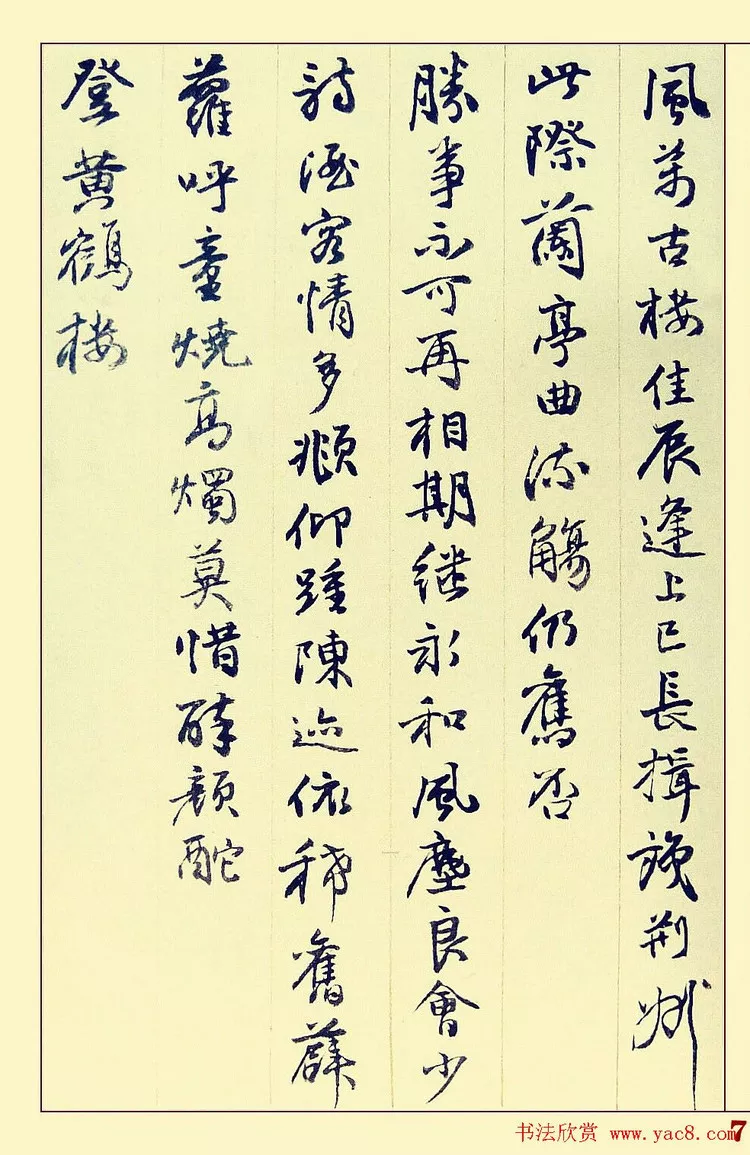 風萬古樓佳辰逢上巳長揖識荊州
此際蘭亭曲流觴仍舊否
勝事不可再相期繼永和風塵良會少
詩酒客情多頫仰踵陳迹依稀舊薜
蘿呼童燒高燭莫惜醉顏酡
登黄鶴樓
书法欣赏 www.yac8.com 7